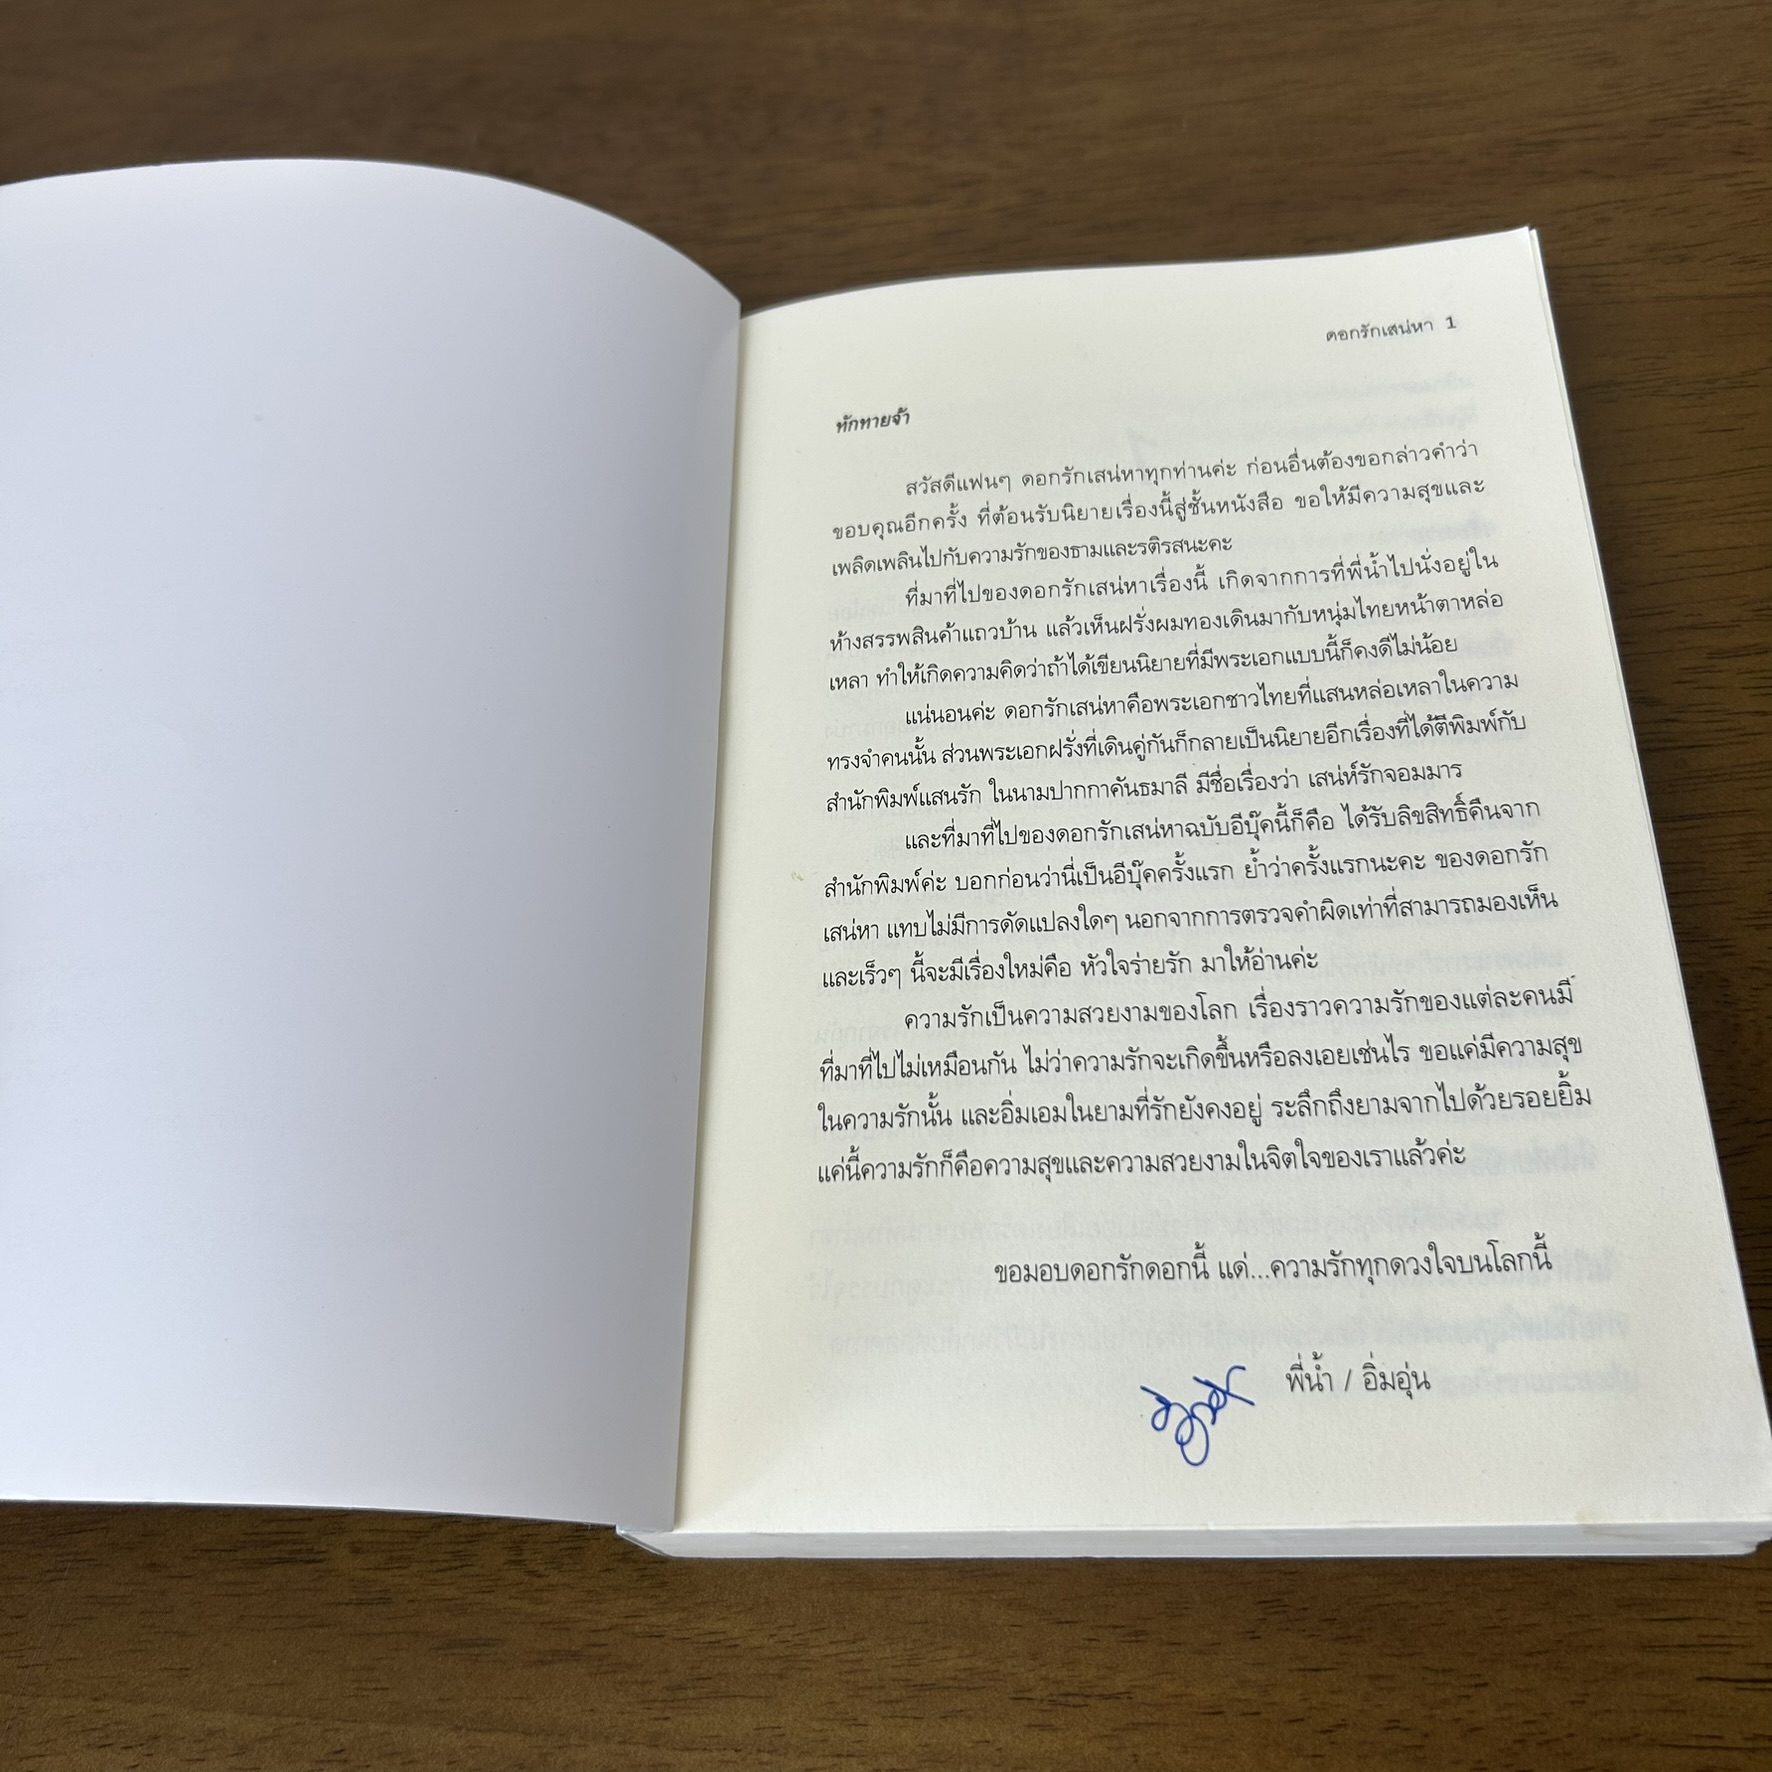 ดอกรักเสน่หา 1
ทักทายจ้า
สวัสดีแฟนๆ ดอกรักเสน่หาทุกท่านค่ะ ก่อนอื่นต้องขอกล่าวคำว่า
ขอบคุณอีกครั้ง ที่ต้อนรับนิยายเรื่องนี้สู่ชั้นหนังสือ ขอให้มีความสุขและ
เพลิดเพลินไปกับความรักของธามและรติรสนะคะ
ที่มาที่ไปของดอกรักเสน่หาเรื่องนี้ เกิดจากการที่พี่น้ำไปนั่งอยู่ใน
ห้างสรรพสินค้าแถวบ้าน แล้วเห็นฝรั่งผมทองเดินมากับหนุ่มไทยหน้าตาหล่อ
เหลา ทำให้เกิดความคิดว่าถ้าได้เขียนนิยายที่มีพระเอกแบบนี้ก็คงดีไม่น้อย
แน่นอนค่ะ ดอกรักเสน่หาคือพระเอกชาวไทยที่แสนหล่อเหลาในความ
ทรงจำคนนั้น ส่วนพระเอกฝรั่งที่เดินคู่กันก็กลายเป็นนิยายอีกเรื่องที่ได้ตีพิมพ์กับ
สำนักพิมพ์แสนรัก ในนามปากกาคันธมาลี มีชื่อเรื่องว่า เสน่ห์รักจอมมาร
และที่มาที่ไปของดอกรักเสน่หาฉบับอีบุ๊คนี้ก็คือ ได้รับลิขสิทธิ์คืนจาก
สำนักพิมพ์ค่ะ บอกก่อนว่านี่เป็นอีบุ๊คครั้งแรก ย้ำว่าครั้งแรกนะคะ ของดอกรัก
เสน่หา แทบไม่มีการดัดแปลงใดๆ นอกจากการตรวจคำผิดเท่าที่สามารถมองเห็น
และเร็วๆ นี้จะมีเรื่องใหม่คือ หัวใจร่ายรัก มาให้อ่านค่ะ
ความรักเป็นความสวยงามของโลก เรื่องราวความรักของแต่ละคนมี
ที่มาที่ไปไม่เหมือนกัน ไม่ว่าความรักจะเกิดขึ้นหรือลงเอยเช่นไร ขอแค่มีความสุข
ในความรักนั้น และอิ่มเอมในยามที่รักยังคงอยู่ ระลึกถึงยามจากไปด้วยรอยยิ้ม
แค่นี้ความรักก็คือความสุขและความสวยงามในจิตใจของเราแล้วค่ะ
ขอมอบดอกรักดอกนี้ แด่...ความรักทุกดวงใจบนโลกนี้
พี่น้ำ / อิ่มอุ่น